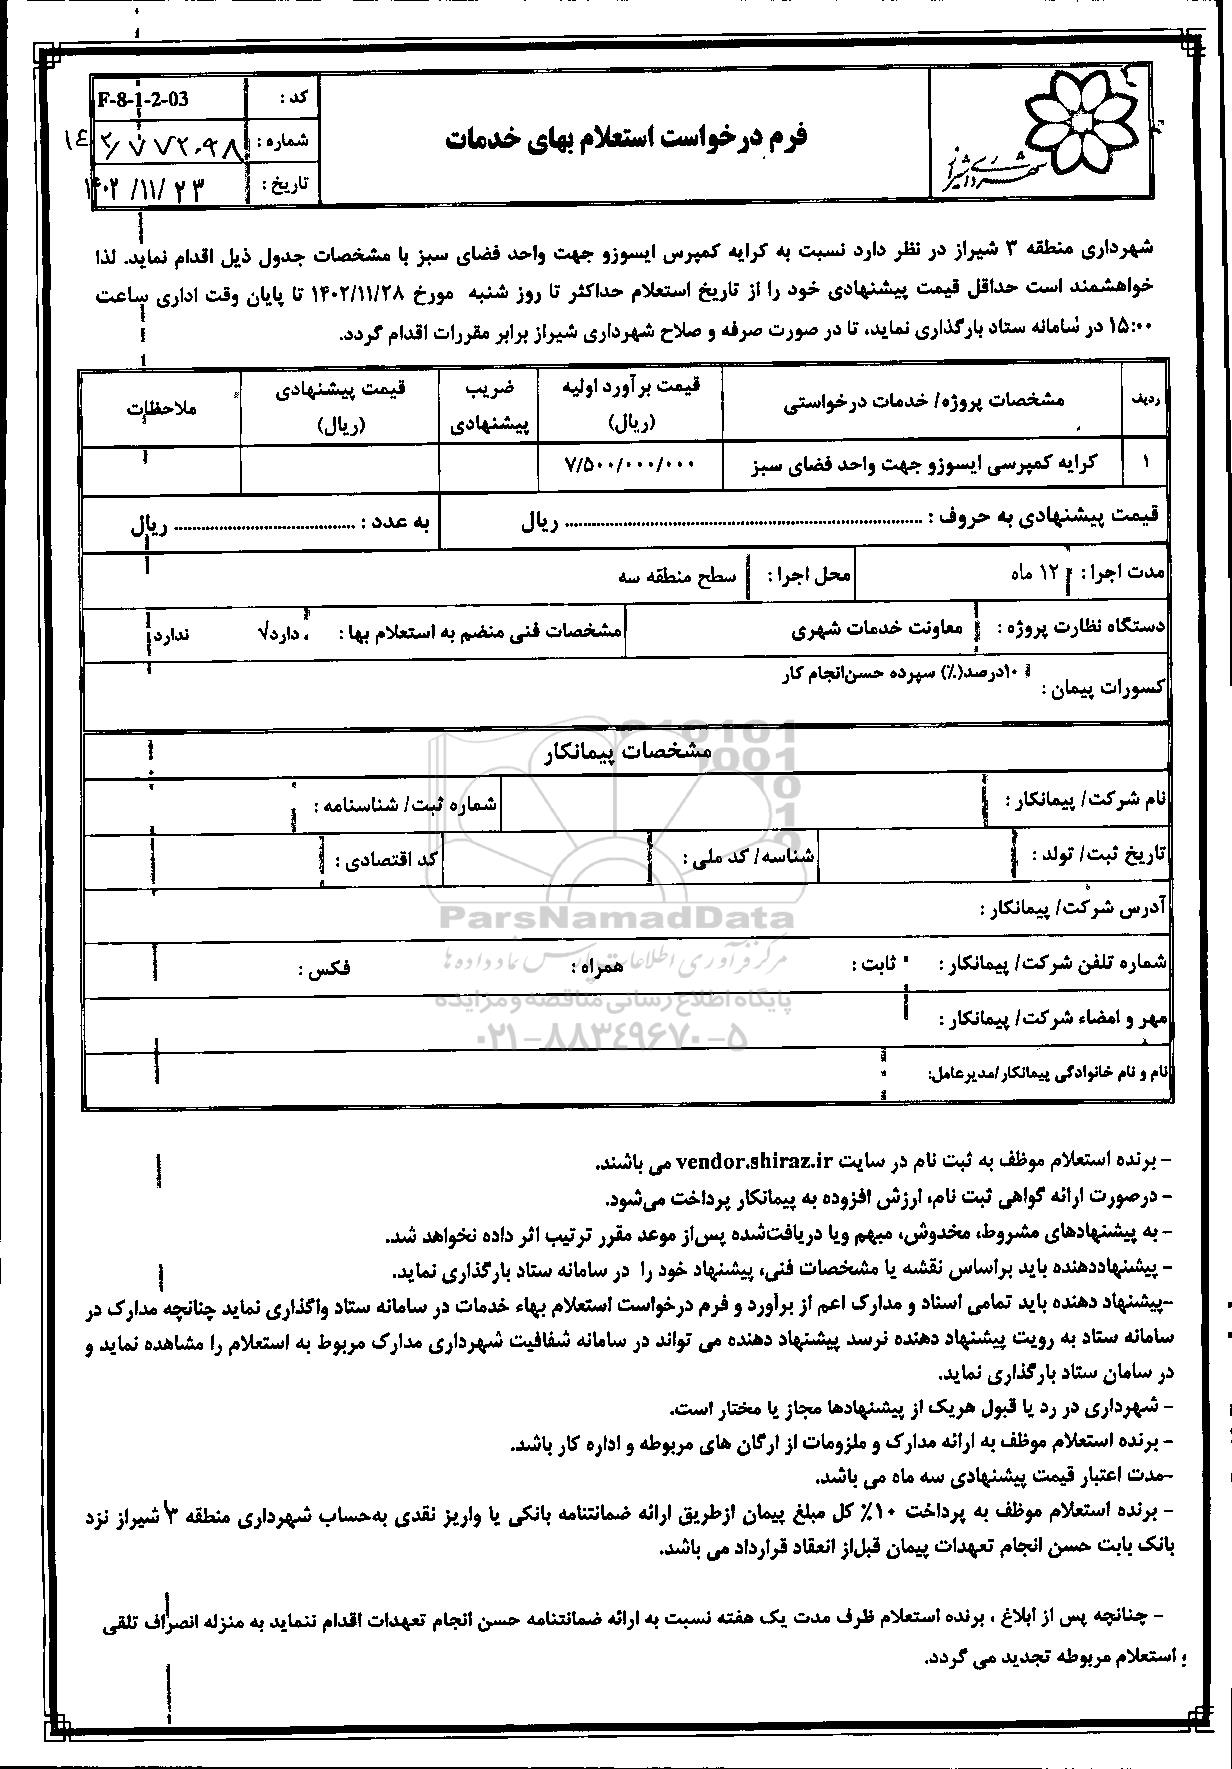 شهرداری شیراز
فرم درخواست استعلام بهای خدمات
کد : F-8-1-2-03
شماره : ۱۴۰۲/۷۷۲۰۹۸
تاریخ : ۱۴۰۲/۱۱/۲۳
شهرداری منطقه ۳ شیراز در نظر دارد نسبت به کرایه کمپرس ایسوزو جهت واحد فضای سبز با مشخصات جدول ذیل اقدام نماید. لذا
خواهشمند است حداقل قیمت پیشنهادی خود را از تاریخ استعلام حداکثر تا روز شنبه مورخ ۱۴۰۲/۱۱/۲۸ تا پایان وقت اداری ساعت
۱۵:۰۰ در سامانه ستاد بارگذاری نماید، تا در صورت صرفه و صلاح شهرداری شیراز برابر مقررات اقدام گردد.
ردیف مشخصات پروژه/ خدمات درخواستی قیمت برآورد اولیه (ریال) ضریب پیشنهادی قیمت پیشنهادی (ریال) ملاحظات
۱ کرایه کمپرسی ایسوزو جهت واحد فضای سبز ۷/۵۰۰/۰۰۰/۰۰۰
قیمت پیشنهادی به حروف : .......................... ریال به عدد : .......................... ریال
مدت اجرا : ۱۲ ماه محل اجرا : سطح منطقه سه
دستگاه نظارت پروژه : معاونت خدمات شهری مشخصات فنی منضم به استعلام بها : دارد√ ندارد
کسورات پیمان : ۱۰درصد(٪) سپرده حسن‌انجام کار
مشخصات پیمانکار
نام شرکت/ پیمانکار : شماره ثبت/ شناسنامه :
تاریخ ثبت/ تولد : شناسه/ کد ملی : کد اقتصادی :
آدرس شرکت/ پیمانکار :
شماره تلفن شرکت/ پیمانکار : ثابت : همراه : فکس :
مهر و امضاء شرکت/ پیمانکار :
نام و نام خانوادگی پیمانکار/مدیرعامل:
ParsNamadData
مرکز فرآوری اطلاعات پارس نماد داده ها
پایگاه اطلاع رسانی مناقصه و مزایده
۰۲۱-۸۸۳۴۹۶۷۰-۵
- برنده استعلام موظف به ثبت نام در سایت vendor.shiraz.ir می باشند.
- درصورت ارائه گواهی ثبت نام، ارزش افزوده به پیمانکار پرداخت می‌شود.
- به پیشنهادهای مشروط، مخدوش، مبهم ویا دریافت‌شده پس‌از موعد مقرر ترتیب اثر داده نخواهد شد.
- پیشنهاددهنده باید براساس نقشه یا مشخصات فنی، پیشنهاد خود را در سامانه ستاد بارگذاری نماید.
-پیشنهاد دهنده باید تمامی اسناد و مدارک اعم از برآورد و فرم درخواست استعلام بهاء خدمات در سامانه ستاد واگذاری نماید چنانچه مدارک در
سامانه ستاد به رویت پیشنهاد دهنده نرسد پیشنهاد دهنده می تواند در سامانه شفافیت شهرداری مدارک مربوط به استعلام را مشاهده نماید و
در سامان ستاد بارگذاری نماید.
- شهرداری در رد یا قبول هریک از پیشنهادها مجاز یا مختار است.
- برنده استعلام موظف به ارائه مدارک و ملزومات از ارگان های مربوطه و اداره کار باشد.
-مدت اعتبار قیمت پیشنهادی سه ماه می باشد.
- برنده استعلام موظف به پرداخت ۱۰٪ کل مبلغ پیمان ازطریق ارائه ضمانتنامه بانکی یا واریز نقدی به‌حساب شهرداری منطقه ۳ شیراز نزد
بانک بابت حسن انجام تعهدات پیمان قبل‌از انعقاد قرارداد می باشد.
- چنانچه پس از ابلاغ ، برنده استعلام ظرف مدت یک هفته نسبت به ارائه ضمانتنامه حسن انجام تعهدات اقدام ننماید به منزله انصراف تلقی
و استعلام مربوطه تجدید می گردد.